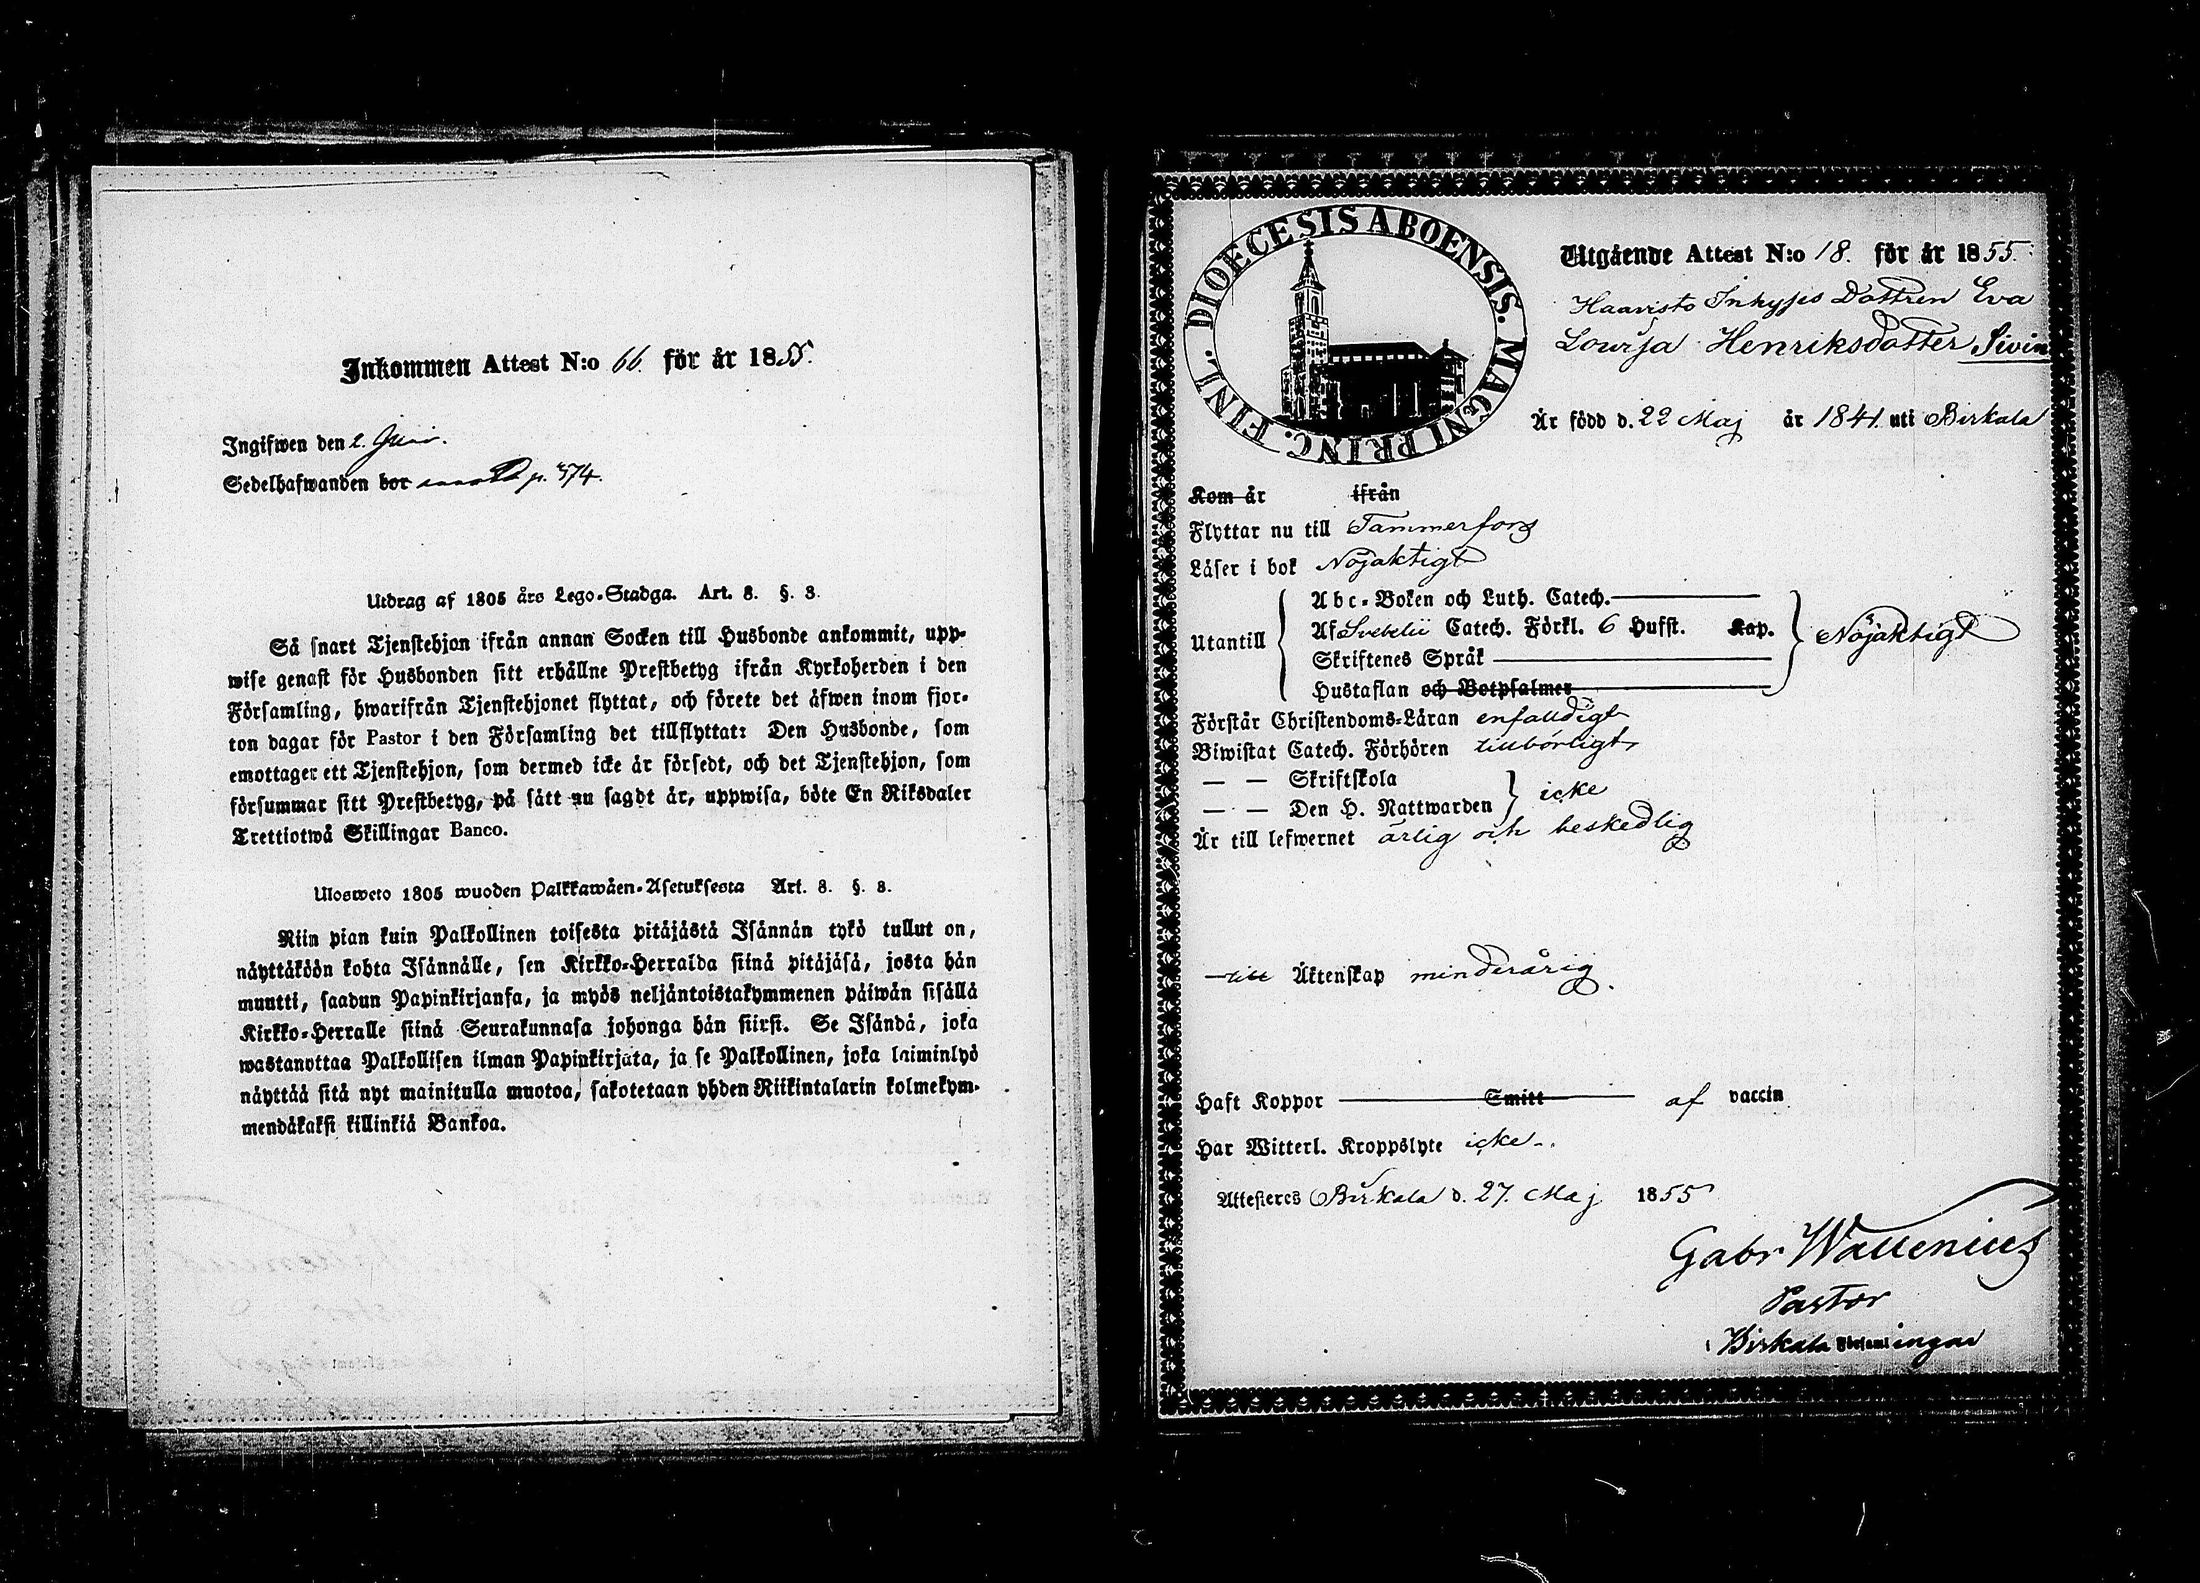 Inkommen Attest N:o 66. för år 1855.
Ingifwen den 2. Juni.
Sedelhafwanden bor p. 574.
Utdrag af 1805 års Lego-Stadga. Art. 8. §. 3.
Så snart Tjenstehjon ifrån annan Socken till Husbonde ankommit, upp-
wise genast för Husbonden sitt erhållne Prestbetyg ifrån Kyrkoherden i den
Församling, hwarifrån Tjenstehjonet flyttat, och förete det äfwen inom fjor-
ton dagar för Pastor i den Församling det tillflyttat: Den Husbonde, som
emottager ett Tjenstehjon, som dermed icke är försedt, och det Tjenstehjon, som
försummar sitt Prestbetyg, på sätt nu sagdt är, uppwisa, böte En Riksdaler
Trettiotwå Skillingar Banco.
Ulosweto 1805 wuoden Palkkawäen-Asetuksesta Art. 8. §. 3.
Niin pian kuin Palkollinen toisesta pitäjästä Isännän tykö tullut on,
näyttäköön kohta Isännälle, sen Kirkko-Herralda siinä pitäjäsä, josta hän
muutti, saadun Papinkirjansa, ja myös neljäntoistakymmenen päiwän sisällä
Kirkko-Herralle siinä Seurakunnasa johonga hän siirsi. Se Isändä, joka
wastanottaa Palkollisen ilman Papinkirjata, ja se Palkollinen, joka laiminlyö
näyttää sitä nyt mainitulla muotoa, sakotetaan yhden Riikintalarin kolmekym-
mendäkaksi killinkiä Bankoa.
DIOECESIS ABOENSIS. MAGNI PRINC. FINL.
Utgående Attest N:o 18. för år 1855.
Haavisto Inhyses Dottren Eva
Lovisa Henriksdotter Sivin
Är född d. 22 Maj år 1841. uti Birkala
Kom år ifrån
Flyttar nu till Tammerfors
Läser i bok Nöjaktigt
Utantill
Abc-Boken och Luth. Catech.
Af Svebelii Catech. Förkl. 6 Hufst. Kap.
Skriftenes Språk
Hustaflan och Botpsalmer
Nöjaktigt
Förstår Christendoms-Läran enfaldigt
Biwistat Catech. Förhören tillbörligt,
— — Skriftskola
— — Den H. Nattwarden
icke
Är till lefwernet ärlig och beskedlig
— till Äktenskap minderårig.
Haft Koppor Smitt af vaccin
Har Witterl. Kroppslyte icke -.
Attesteres Birkala d. 27. Maj 1855
Gabr Wallenius
Pastor
i Birkala Församlingar